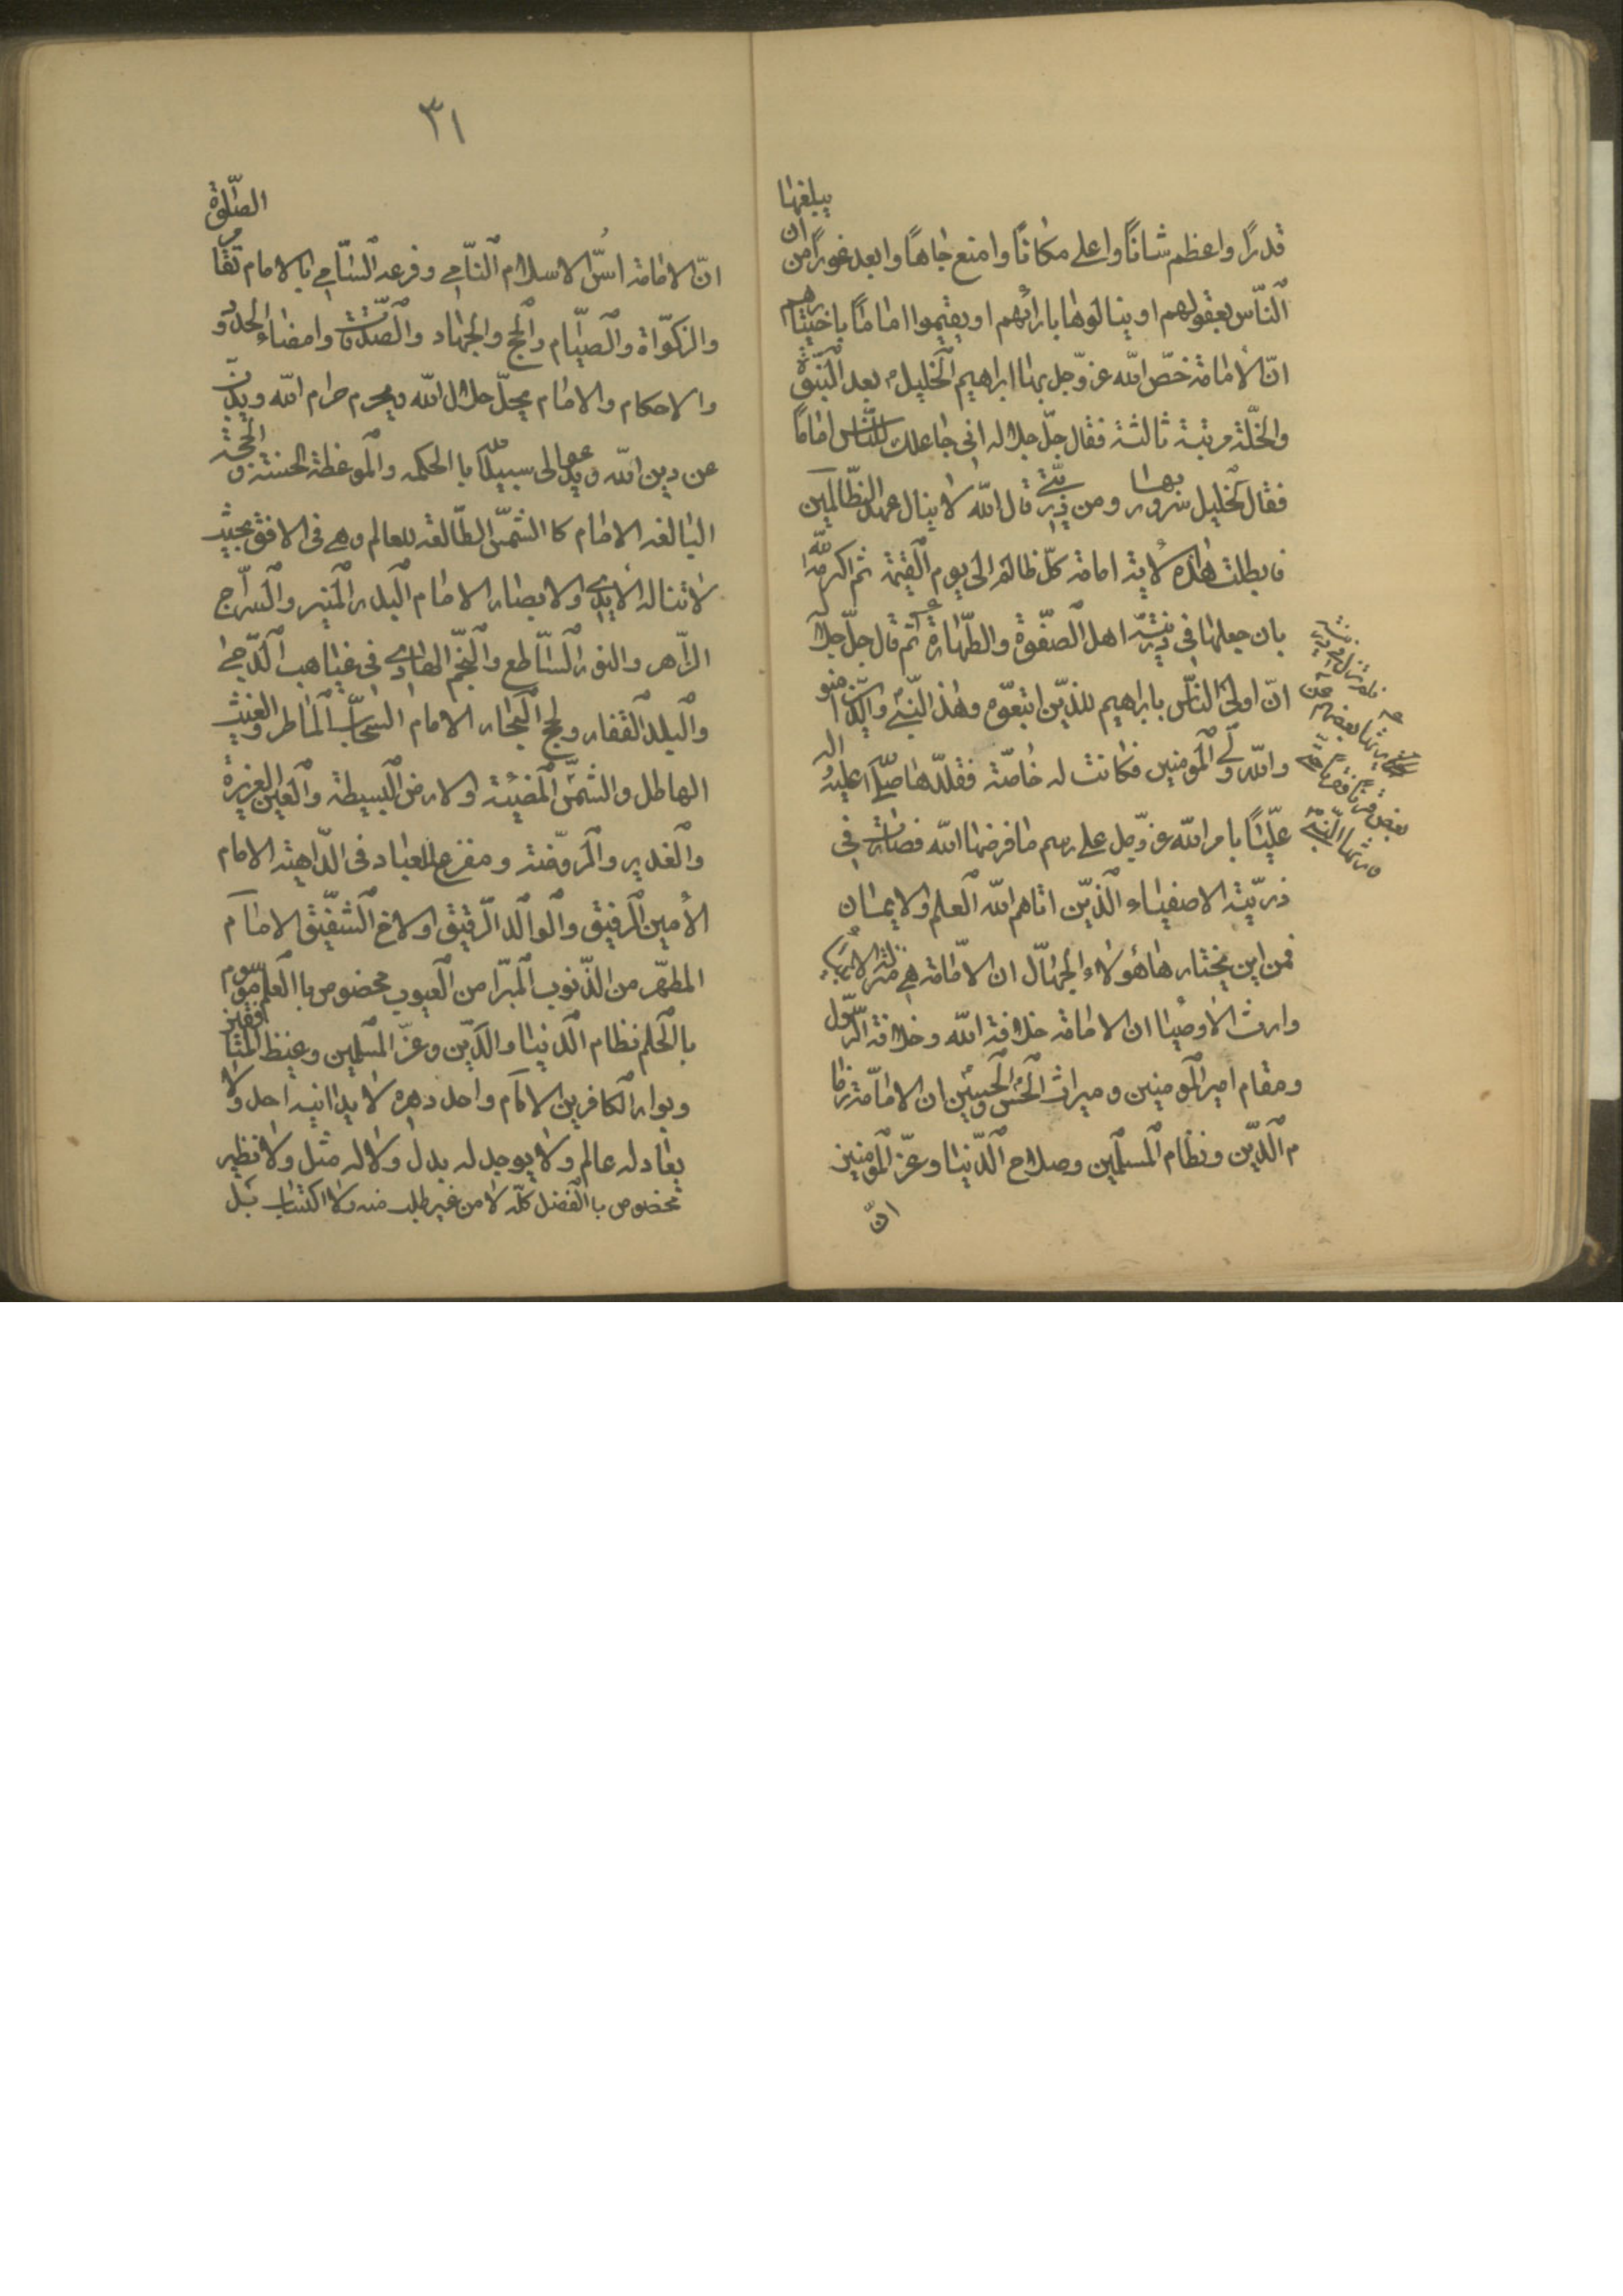 قدرًا واعظم شانًا واعلى مكانًا وامنع جاهًا وابعد غورًا من ان يبلغها
النّاس بعقولهم او ينالوها بارائهم او يقيموا اماما باختيارهم
انّ الامامة خصّ الله عزّ وجل بها ابراهيم الخليل م بعد النبّوة
والخلّة مرتبة ثالثة فقال جلّ جلاله انى جاعلك للنّاس اماما
فقال الخليل سرور بها ومن ذريتى قال الله لا ينال عهدى الظّالمين
فابطلت هذه الاية امامة كلّ ظالم الى يوم القيمة ثم اكرمه الله
بان جعلها فى ذريته اهل الصّفوة والطّهارة ثم قال جلّ جلاله
انّ اولى النّاس بابراهيم للذّين اتبعوه وهذا النّبى والّذين امنو
والله ولى المومنين فكانت له خاصّة فقلّدها صلى الله عليه واله
عليّا بامر الله عزّ وجل على رسم ما فرضها الله فصارت فى
ذريّته الاصفياء الّذين اتاهم الله العلم والايمان
فمن اين يختار هاهؤلاء الجهّال ان الامامة هى منزلة الانبياء
وارث الاوصيا ان الامامة خلافة الله وخلافة الرّسول
ومقام امير المومنين وميراث الحسن والحسين ان الامامة زما
م الدّين ونظام المسلمين وصلاح الدّنيا وعزّ المومنين
انّ
فلم تزل فى ذريته
يرثها بعضهم عن
بعض قرنا فقرنا حتى
ورثها النّبى
٣١
انّ الامامة اسّ الاسلام النّامى وفرعه السّامى بالامام تقام الصّلوة
والزكوّاة والصيّام والحج والجهاد والصّدقات وامضاء الحدود
والاحكام والامام يحلّ حلال الله ويحرم حرام الله ويذبّ
عن دين الله ويدعو الى سبيل الله باالحكمه والموعظة الحسنة والحجّة
البالغه الامام كاالشمّس الطّالعة للعالم وهى فى الافق بحيث
لا تناله الايدى والابصار الامام البدر المنير والسّراج
الزّاهر والنور السّاطع والنجّم الهادى فى غياهب الدّجى
والبلد القفار ولجج البحار الامام السّحاب الماطر والغيث
الهاطل والشّمس المضيئة والارض البسيطة والعين الغزيرة
والغدير والروّضة ومفزع العباد فى الدّاهية الامام
الأمين الرفيق والوالد الرّقيق والاخ الشفّيق الامام
المطهّر من الذّنوب المبّرا من العيوب مخصوص باالعلم موسوم
بالحلم نظام الدنيا والدّين وعزّ المسلمين وغيظ المنافقين
وبوار الكافرين الامام واحد دهره لا يدانيه احد ولا
يعادله عالم ولا يوجد له بدل ولا له مثل ولا نظير
مخصوص باالفضل كلّه لا من غير طلب منه ولا اكتساب بَل